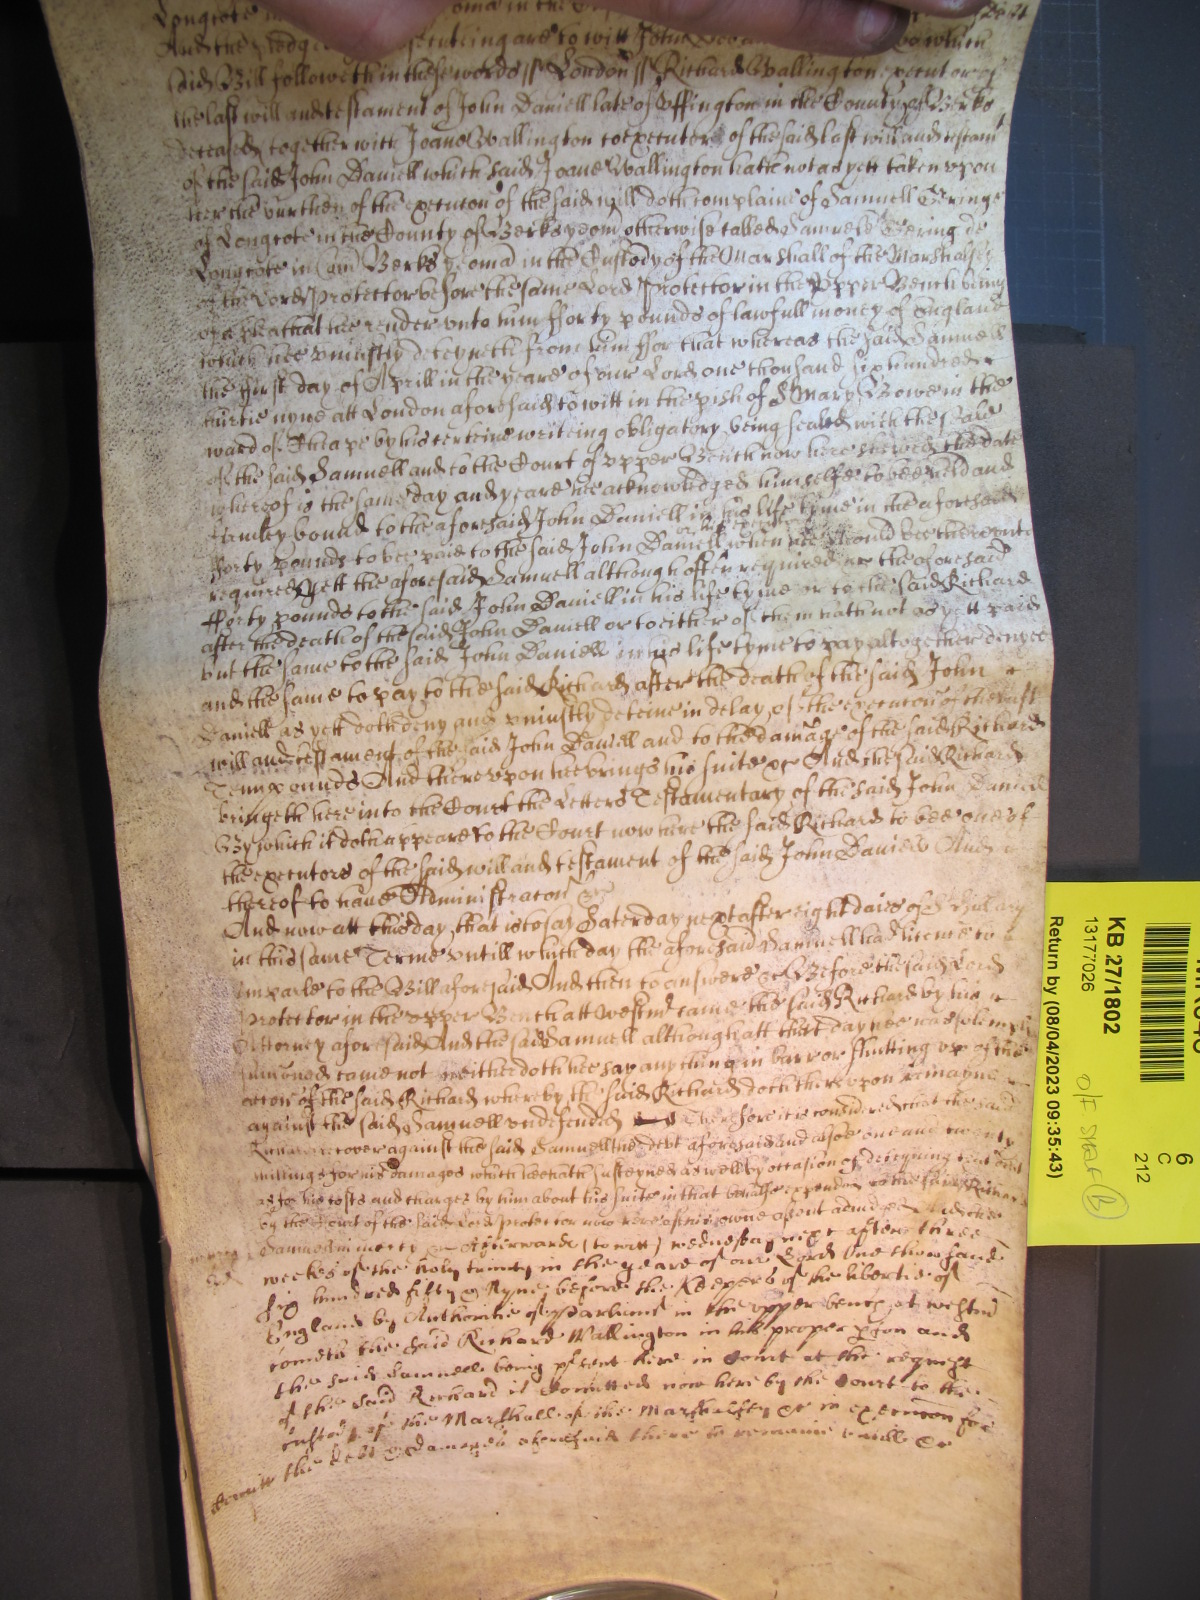 Longcote in
And the pledges prosecuteing are to witt John Doe
said Bill followeth in these words ss London ss Richard Wallington executor of
the last will and testament of John Daniell late of Uffington in the County of Berks
deceased together with Joane Wallington coexecutor of the said last will and testamt
of the said John Daniell which said Joane Wallington hath not as yett taken upon
her the burthen of the execucon of the said will doth complaine of Samuell Geringe
of Longcote in the County of Berks yeom otherwise called Samuell Gering de
Longcote in Com Berks yeoman in the Custody of the Marshall of the Marshalsey
of the Lord Protector before the same Lord Protector in the Upper Bench being
of a plea that hee render unto him fforty pounds of lawfull money of England
which hee uniustly deteyneth from him ffor that whereas the said Samuell
the first day of Aprill in the yeare of our Lord one thousand six hundred
thirtie nyne att London aforesaid to witt in the pish of St Mary Bowe in the
ward of Cheape by his certeine writeing obligatory being sealed with the Seale
of the said Samuell and to the Court of upper Bench now here shewed the date
whereof is the same day and yeare hee acknowledged himselfe to bee held and
firmley bound to the aforesaid John Daniell in his life tyme in the aforesaid
fforty pounds to bee paid to the said John Daniell when hee should bee thereunto
required Yett the aforesaid Samuell although often required the aforesaid
fforty pounds to the said John Daniell in his life tyme or to the said Richard
after the death of the said John Daniell or to either of them hath not as yett paid
but the same to the said John Daniell in his life tyme to pay altogether denyed
and the same to pay to the said Richard after the death of the said John
Daniell as yett doth deny and uniustly deteine in delay of the execucon of the last
will and testament of the said John Daniell and to the damage of the said Richard
Tenn pounds And thereupon hee brings his suite &c And the said Richard
bringeth here into the Court the Letters Testamentary of the said John Daniell
By which it doth appeare to the Court now here the said Richard to bee one of
the executors of the said will and testament of the said John Daniell And
thereof to have Administracon &c
And now att this day that is to say Saterday next after eight daies of St Hillary
in this same Terme untill which day the aforesaid Samuell had licence to
imparle to the Bill aforesaid And then to answere &c Before the said Lord
Protector in the upper Bench att Westmr came the said Richard by his
Attorney aforesaid And the said Samuell although att that day hee was solemply
sumoned came not neither doth hee say any thing in barr or shutting up of the
accon of the said Richard whereby the said Richard doth thereupon remayne
against the said Samuell undefended Therefore it is considered that the said
Richard recover against the said Samuell the debt aforesaid and alsoe one and twenty
shillings for his damages which hee hath susteyned as well by occasion of deteyning that debt
as for his costs and charges by him about his suite in that behalfe expended to the said Richard
by the Court of the said Lord Protector now here of his owne assent adiudged And the
Samuell in mercy &c Afterwards (to witt) wednesday next after three
weekes of the holy trinity in the yeare of our Lord One thousand
six hundred fifty & Nyne before the Keepers of the libertie of
England by Authoritie of Parliamt in the upper bench at westmr
cometh the said Richard Wallington in his proper pson and
the said Samuell being psent here in Court at the request
of the said Richard is Comitted now here by the Court to the
custody of the Marshall of the Marshalsey &c in execucon for
the debt & damages aforesaid there to remaine untill &c
KB 27/1802
13177026
Return by (08/04/2023 09:35:43)
6
C
212